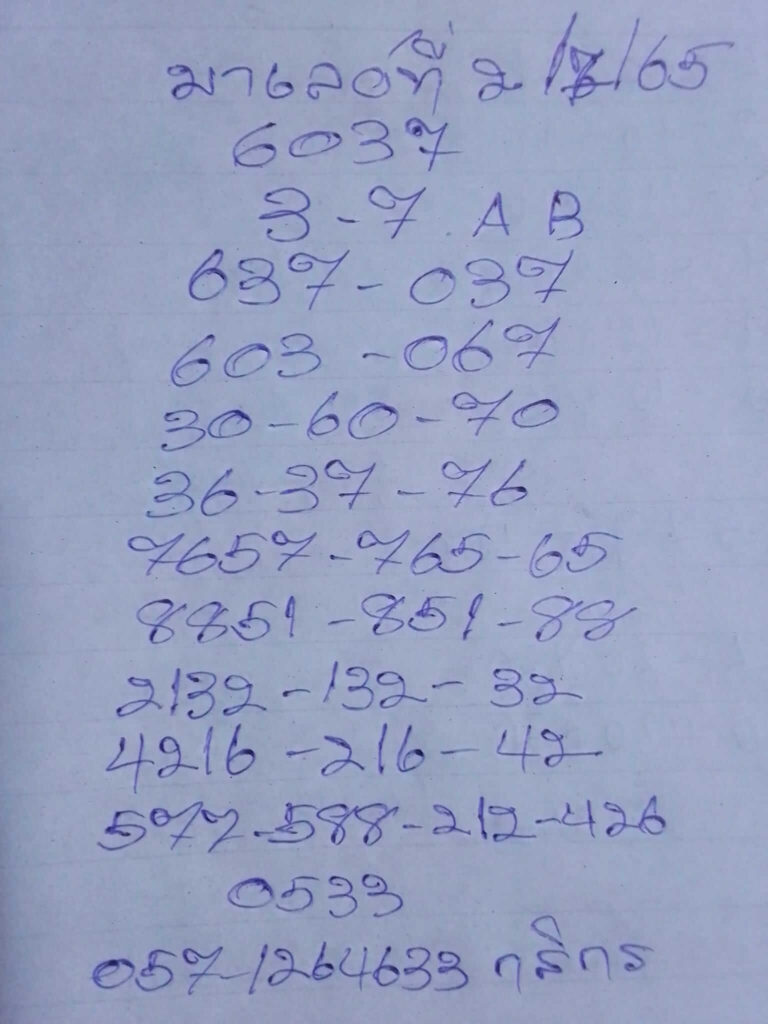 มาเลย์ที่ 2/7/65
6037
3-7 A B
637-037
603-067
30-60-70
36-37-76
7657-765-65
8851-851-88
2132-132-32
4216-216-42
577-588-212-426
0533
057-1264633 กสิกร